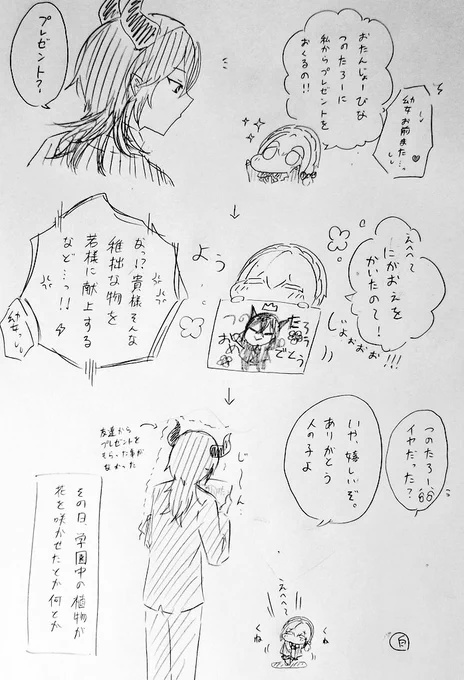 おたんじょーびな
つのたろーに
私からプレゼントを
おくるの!!
幼女お前また…っ♡
プレゼント?
↓
えへへて
にがおえを
かいたのて!
じょぉぉぉ!!!
よう
つのたろう
おめでとう
なっ!?貴様そんな
稚拙な物を
若様に献上する
など…っ!!
幼女っ
↓
つのたろー
イヤだった?
いや、嬉しいぞ。
ありがとう
人の子よ
じーん…
友達から
プレゼントを
もらった事が
なかった
えへへて
くね
くね
その日、学園中の植物が
花を咲かせたとか何とか